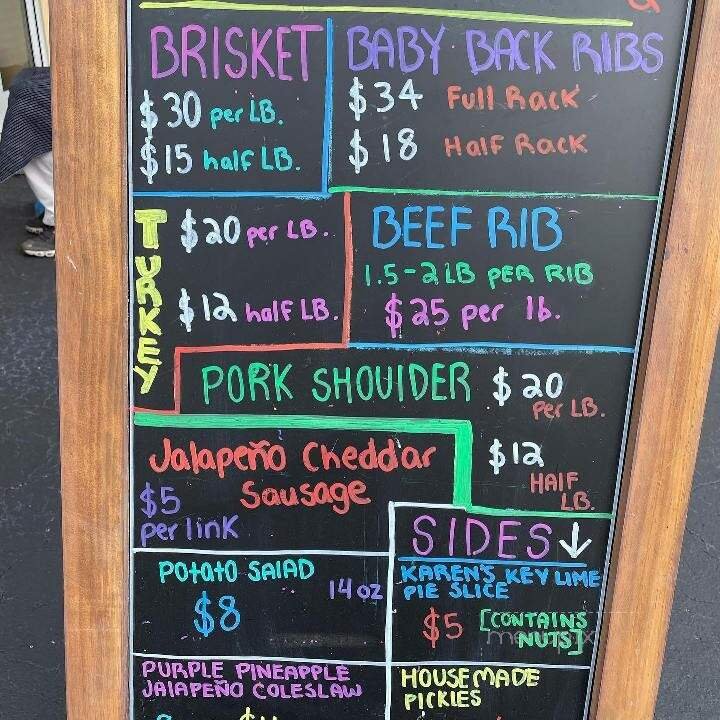 BRISKET
$30 per LB.
$15 half LB.
BABY BACK RIBS
$34 Full Rack
$18 Half Rack
TURKEY
$20 per LB.
$12 half LB.
BEEF RIB
1.5-2LB PER RIB
$25 per lb.
PORK SHOUlDER $20
Per LB.
$12
HALF
LB.
Jalapeño Cheddar
Sausage
$5
per link
SIDES ↓
Potato SAlAD
14oz
$8
KAREN'S KEY LIME
PIE SLICE
$5 [CONTAINS
NUTS]
PURPLE PINEAPPLE
JAlAPEÑO COLESLAW
HOUSEMADE
PICKLES